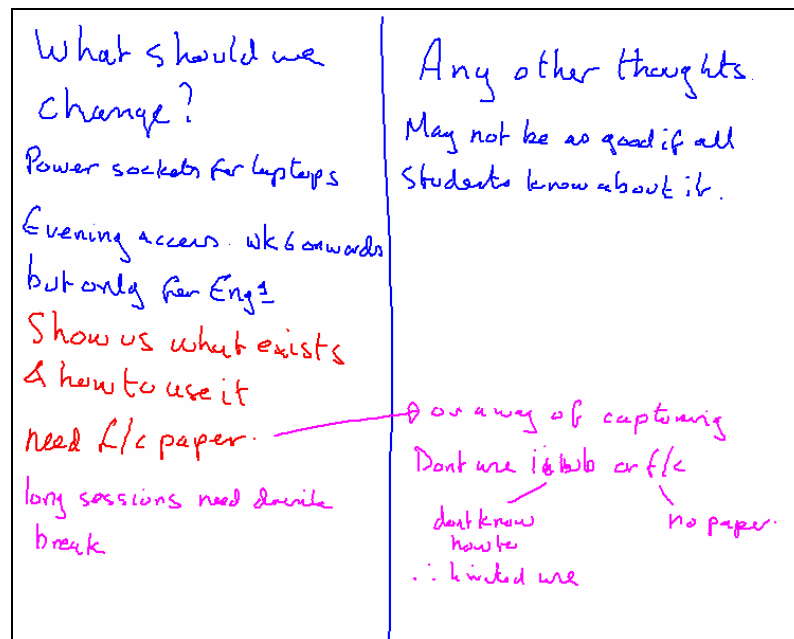 What should we
change?
Power sockets for laptops
Evening access. wk 6 onwards
but only for Eng
Show us what exists
& how to use it
need f/c paper.
long sessions need
break
Any other thoughts.
May not be as good if all
students know about it.
or a way of capturing
Dont use or f/c
dont know
how to
no paper.
∴ limited use